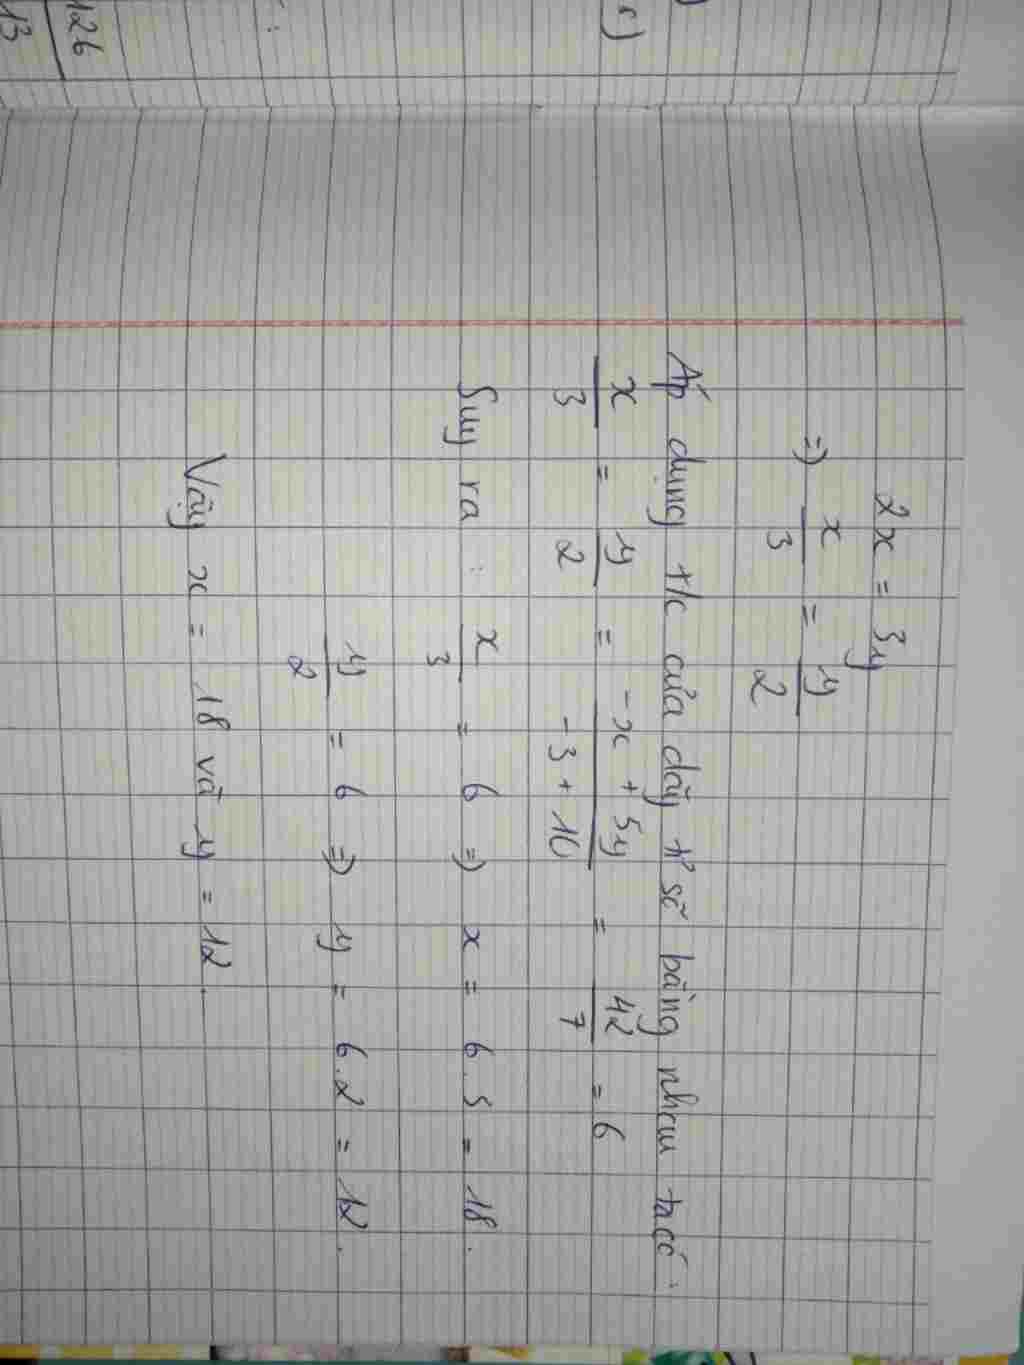 c)
126
13
2x = 3y
=> x/3 = y/2
Áp dụng t/c của dãy tỉ số bằng nhau ta có:
x/3 = y/2 = -x + 5y/-3 + 10 = 42/7 = 6
Suy ra: x/3 = 6 => x = 6.3 = 18.
y/2 = 6 => y = 6.2 = 12.
Vậy x = 18 và y = 12.